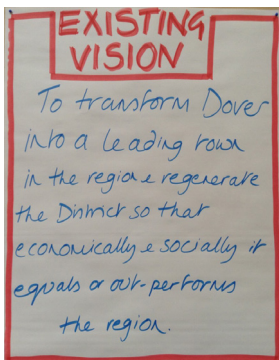 EXISTING
VISION
To transform Dover
into a leading town
in the region & regenerate
the District so that
economically & socially it
equals or out-performs
the region.